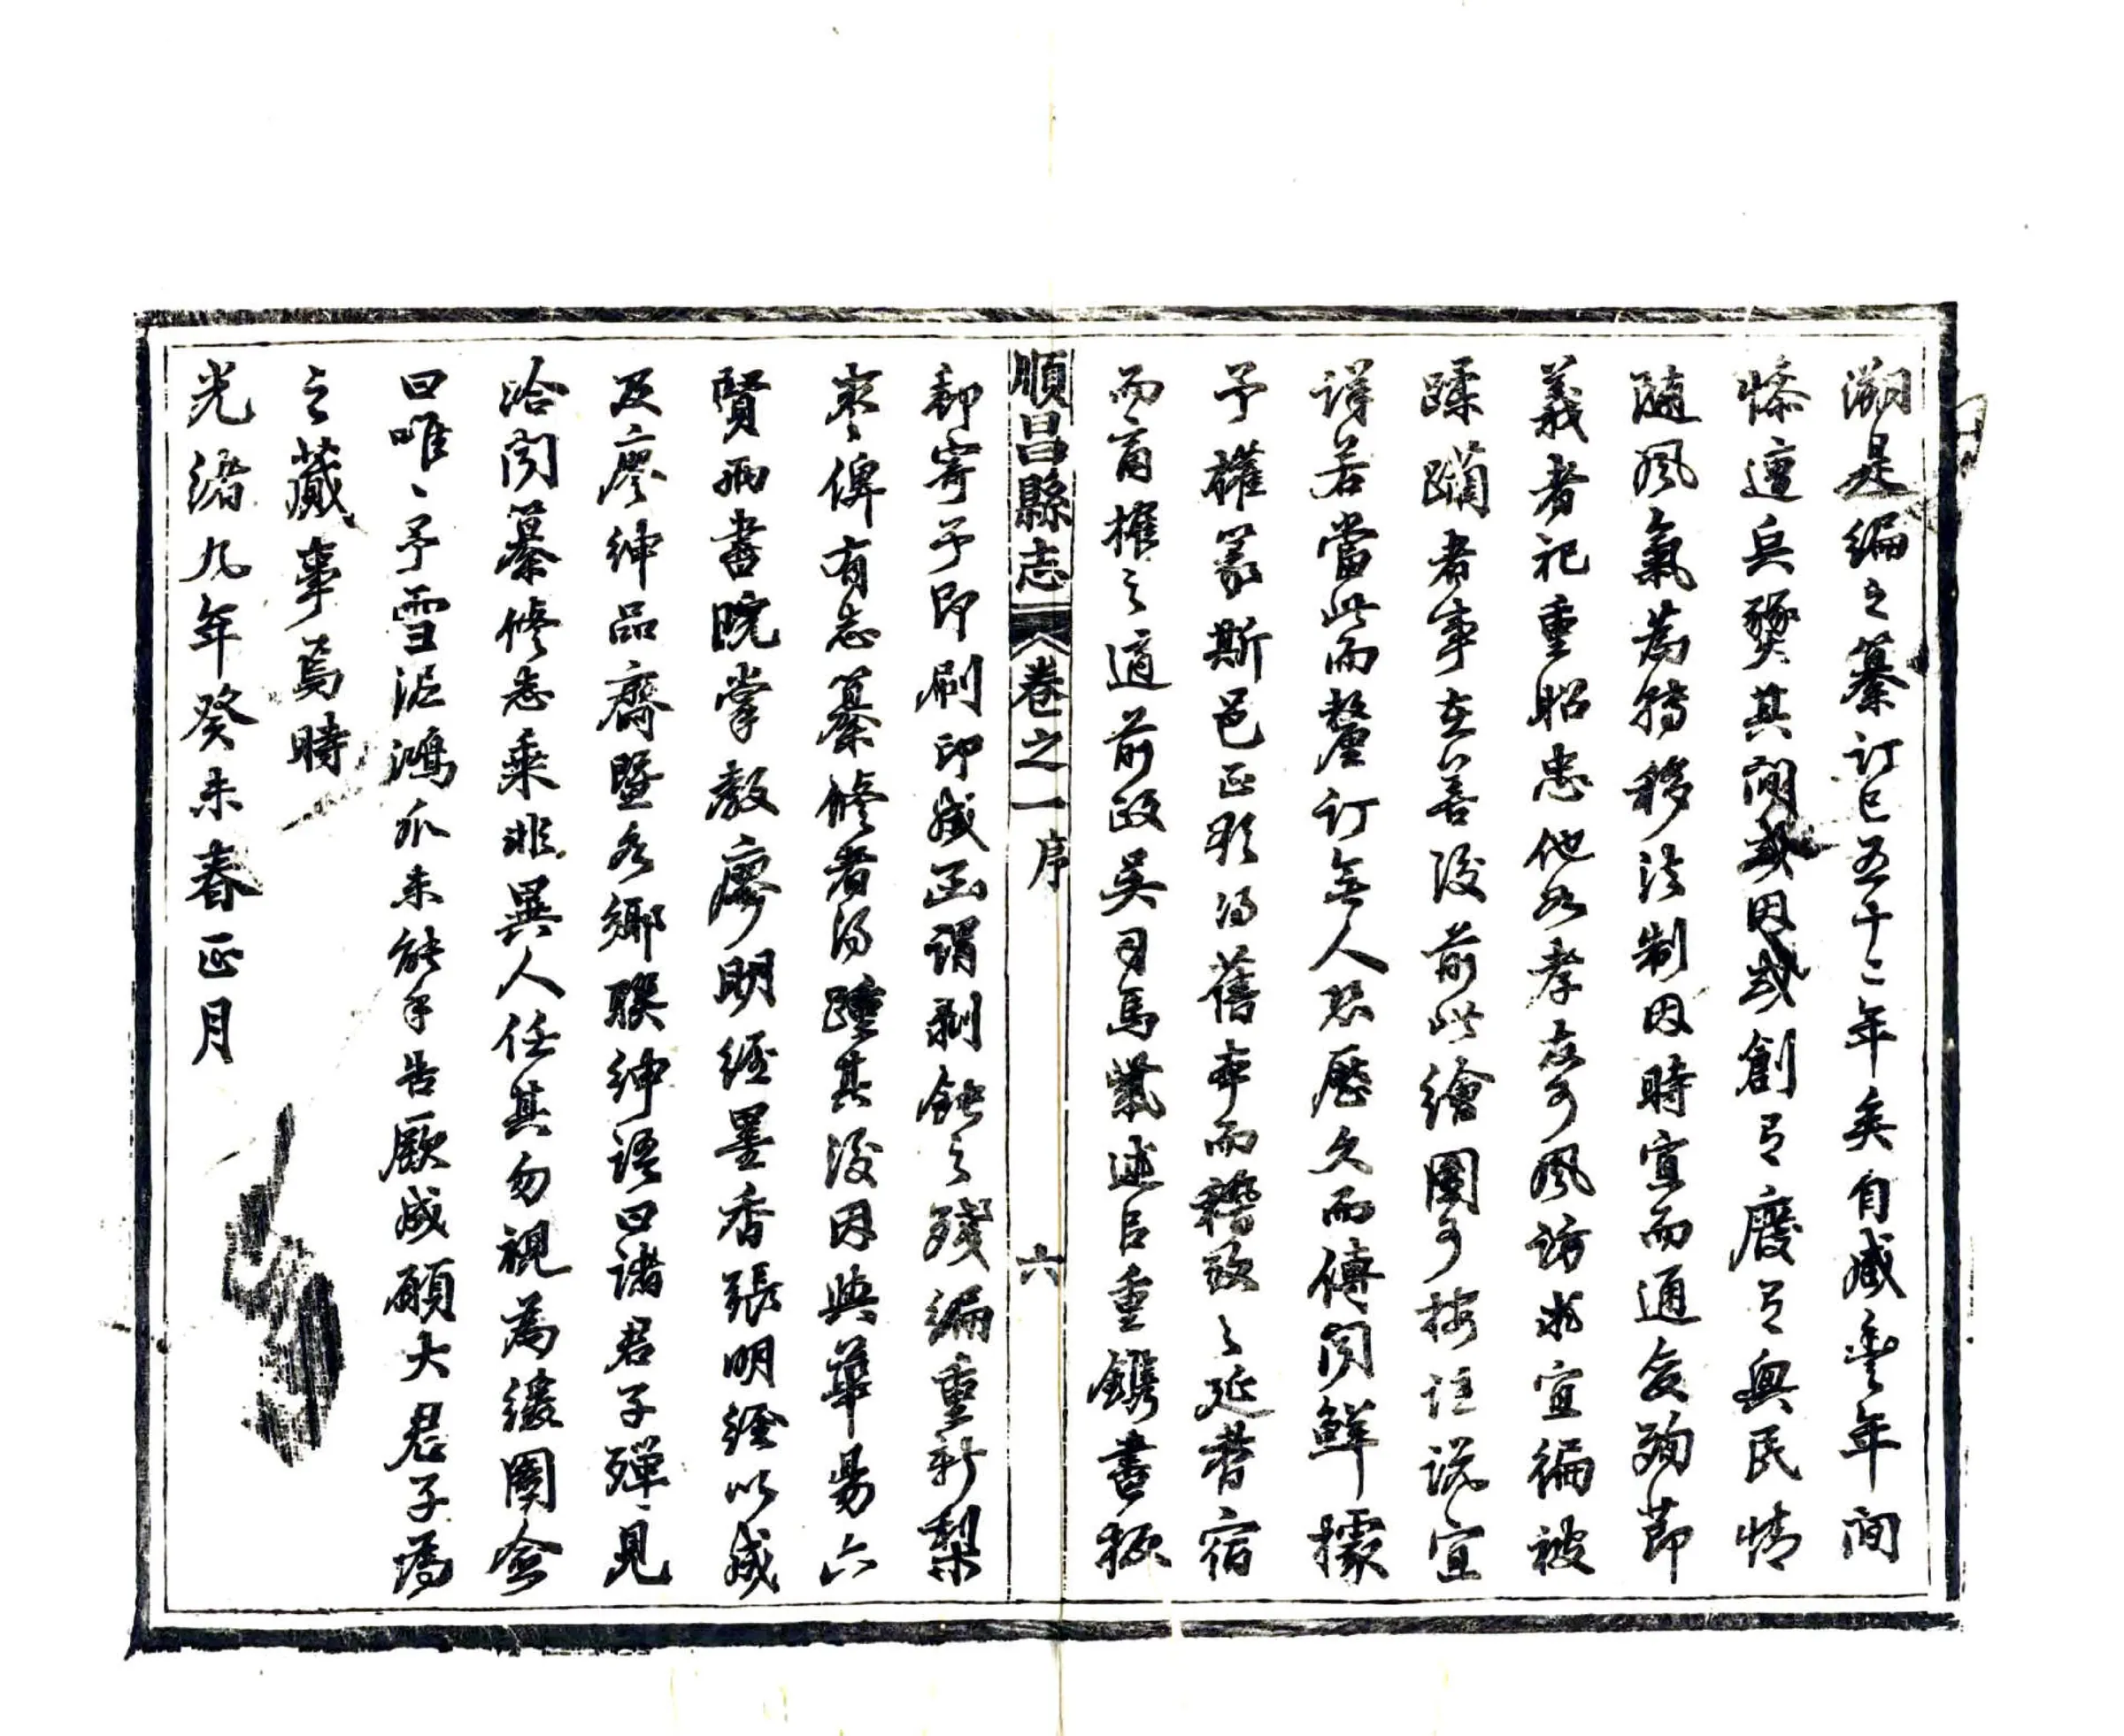 溯是編之纂訂已五十二年矣自咸豐年間
慘遭兵燹其間或因或創有廢有興民情
隨風氣為轉移法制因時宜而通變殉節
義者祀重昭忠他如孝烈可風訪求宜徧被
蹂躪者事在善後前此繪圖可按註說宜
詳若當此而釐訂無人恐歷久而傳聞鮮據
予權篆斯邑正欲得舊本而稽攷之延耆宿
而商搉之適前政吳司馬業述呂重鐫書板
郵寄予即刷印成函謂剥蝕之殘編重新梨
棗俾有志纂修者得踵其後因與華昜六
賢兩書院掌教廖明經墨香張明經以成
及廖紳品齋暨各鄉聯紳語曰諸君子殫見
洽聞纂修志乘非異人任其勿視為緩圖僉
曰唯唯予雪泥鴻爪未能早告厥成願大君子為
之蕆事焉時
光緒九年癸未春正月
順昌縣志 卷之一 序 六